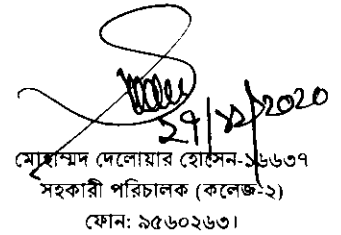 29/12/2020
মোহাম্মদ দেলোয়ার হোসেন-১৬৬৩৭
সহকারী পরিচালক (কলেজ-২)
ফোন: ৯৫৬০২৬৩।